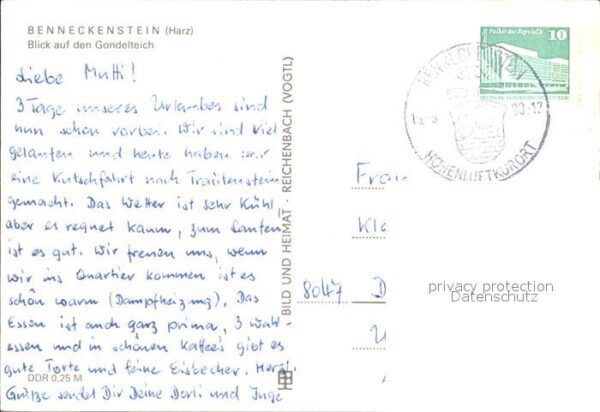 BENNECKENSTEIN (Harz)
Blick auf den Gondelteich
Liebe Mutti!
3 Tage unseres Urlaubes sind
nun schon vorbei. Wir sind viel
gelaufen und heute haben wir
eine Kutschfahrt nach Trautenstein
gemacht. Das Wetter ist sehr kühl,
aber es regnet kaum, zum Laufen
ist es gut. Wir freuen uns, wenn
wir ins Quartier kommen ist es
schön warm (Dampfheizung). Das
Essen ist auch ganz prima, 3 Wahl-
essen und in schönen Kaffee's gibt es
gute Torte und feine Eisbecher. Herzl.
Grüße sendet Dir Deine Dorli und Inge
DDR 0,25 M
BILD UND HEIMAT · REICHENBACH (VOGTL)
Berlin Palast der Republik
10
HÖHENLUFTKURORT
Fra
Kl
8047 D
privacy protection
Datenschutz